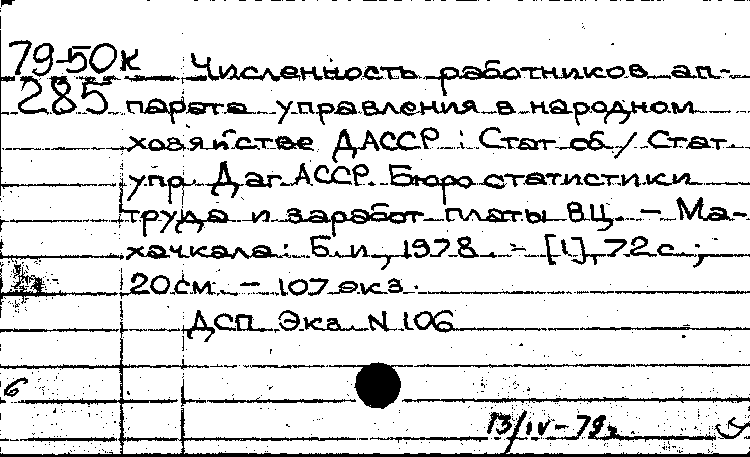 79-50к Численность работников ап-
285 парата управления в народном
хозяйстве ДАССР : Стат сб / Стат.
упр. Даг АССР. Бюро статистики
труда и заработ платы В.Ц. – Ма-
хачкала: Б. и, 1978. – [1], 72 с. ;
20 см. – 107 экз.
ДСП. Экз. N 106
6
13/IV-79г.